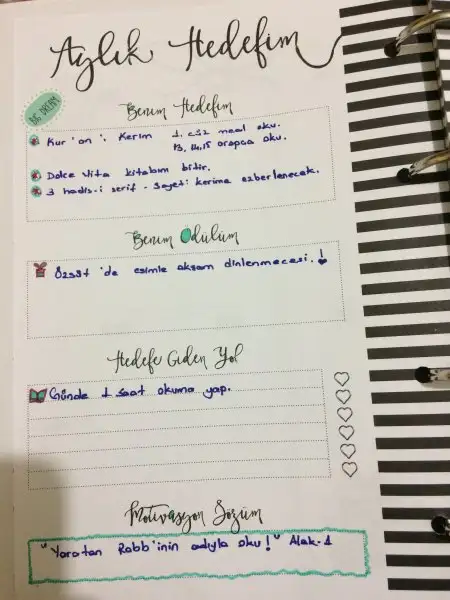 Aylık Hedefim
BIG DREAM
Benim Hedefim
Kur'an-ı Kerim 1. cüz meal oku.
13, 14, 15 arapça oku.
Dolce Vita kitabını bitir.
3 hadis-i şerif - 3 ayet-i kerime ezberlenecek.
Benim Ödülüm
Özsüt'de eşimle akşam dinlenmecesi.!
Hedefe Giden Yol
Günde 1 saat okuma yap.
Motivasyon Sözüm
"Yaratan Rabb'inin adıyla oku!" Alak-1